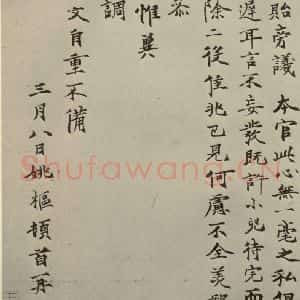 貽旁議 本官此心無一毫之私但
遲耳言不妄發既許小兒待完而
除二從佳兆已見何慮不全美
恭
惟冀
調
文自重不備
三月八日姚樞頓首再
Shufawang.CN